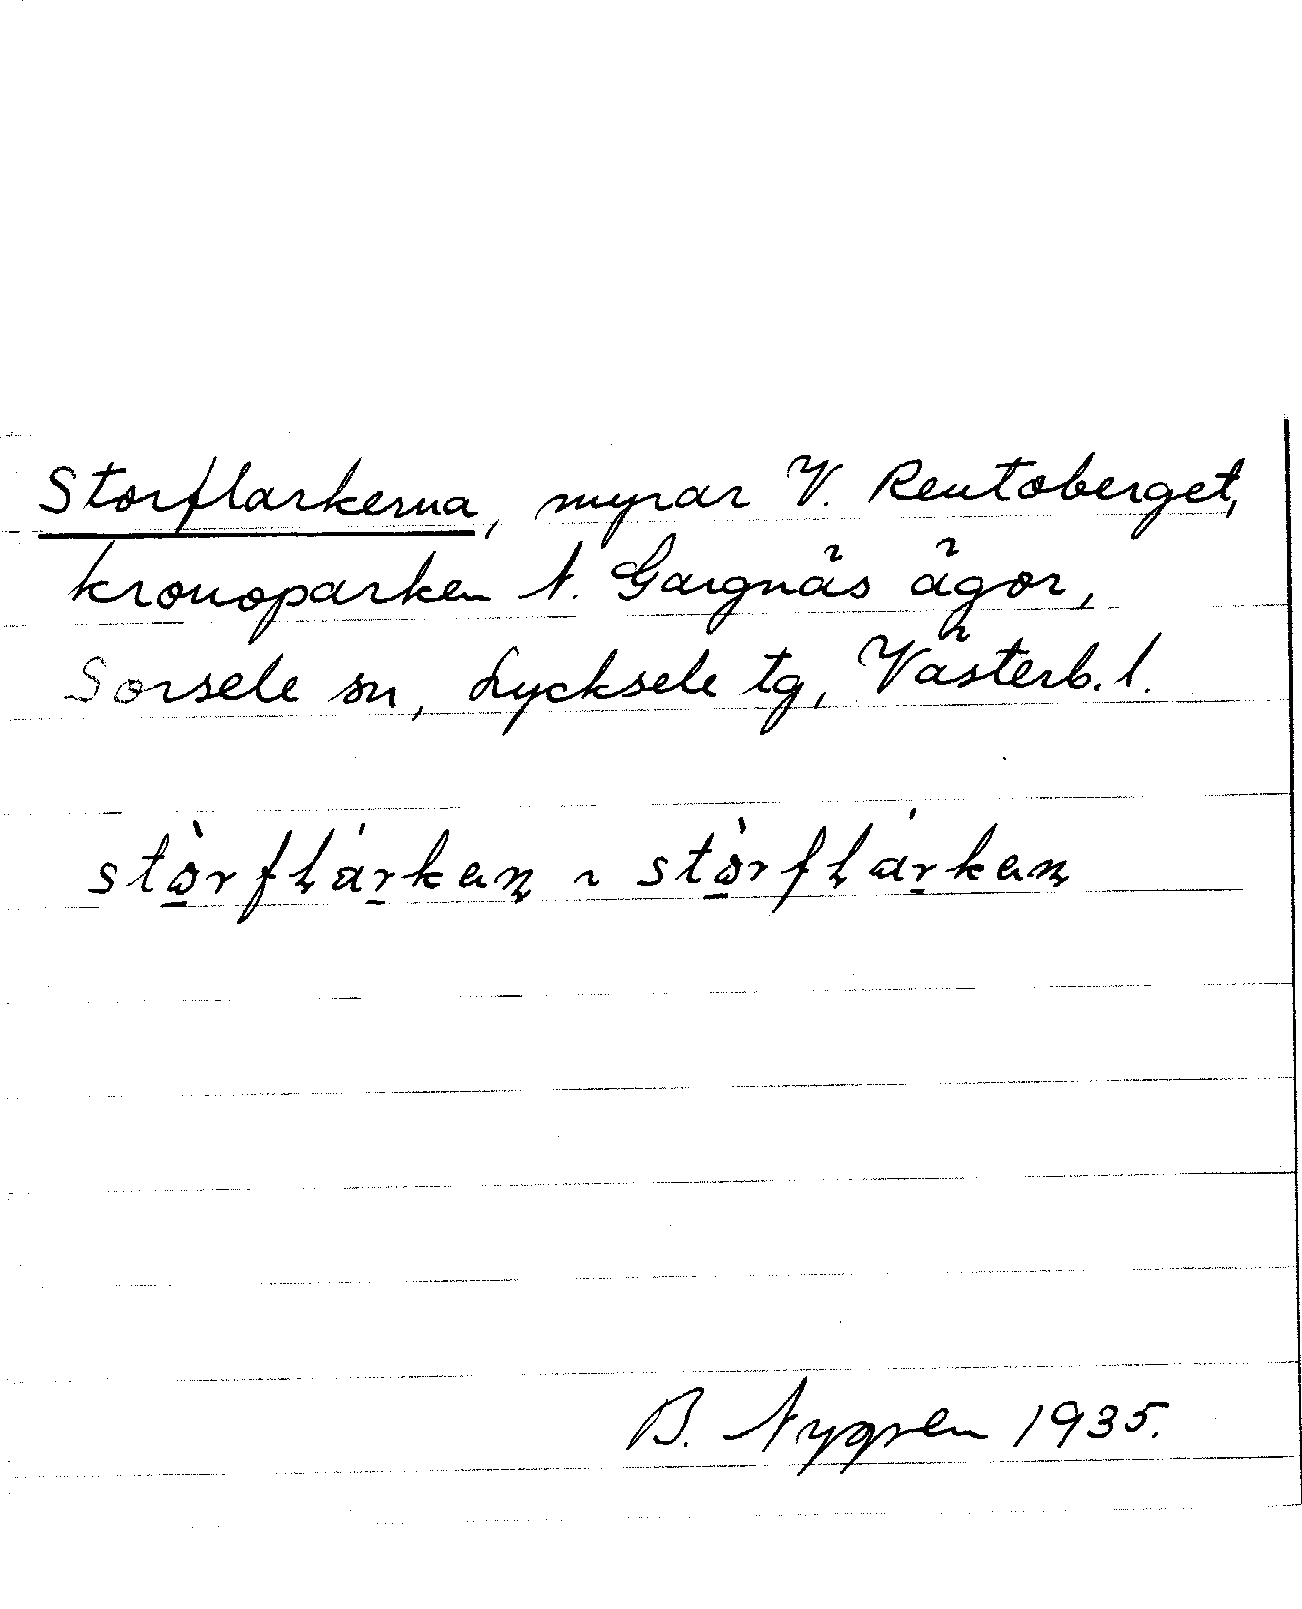 Storflarkerna, myrar V. Rentoberget,
kronoparken N. Gargnäs ägor,
Sorsele sn, Lycksele tg, Västerb. l.
stòrflárkan ~ stòrflárkan
B. Nygren 1935.